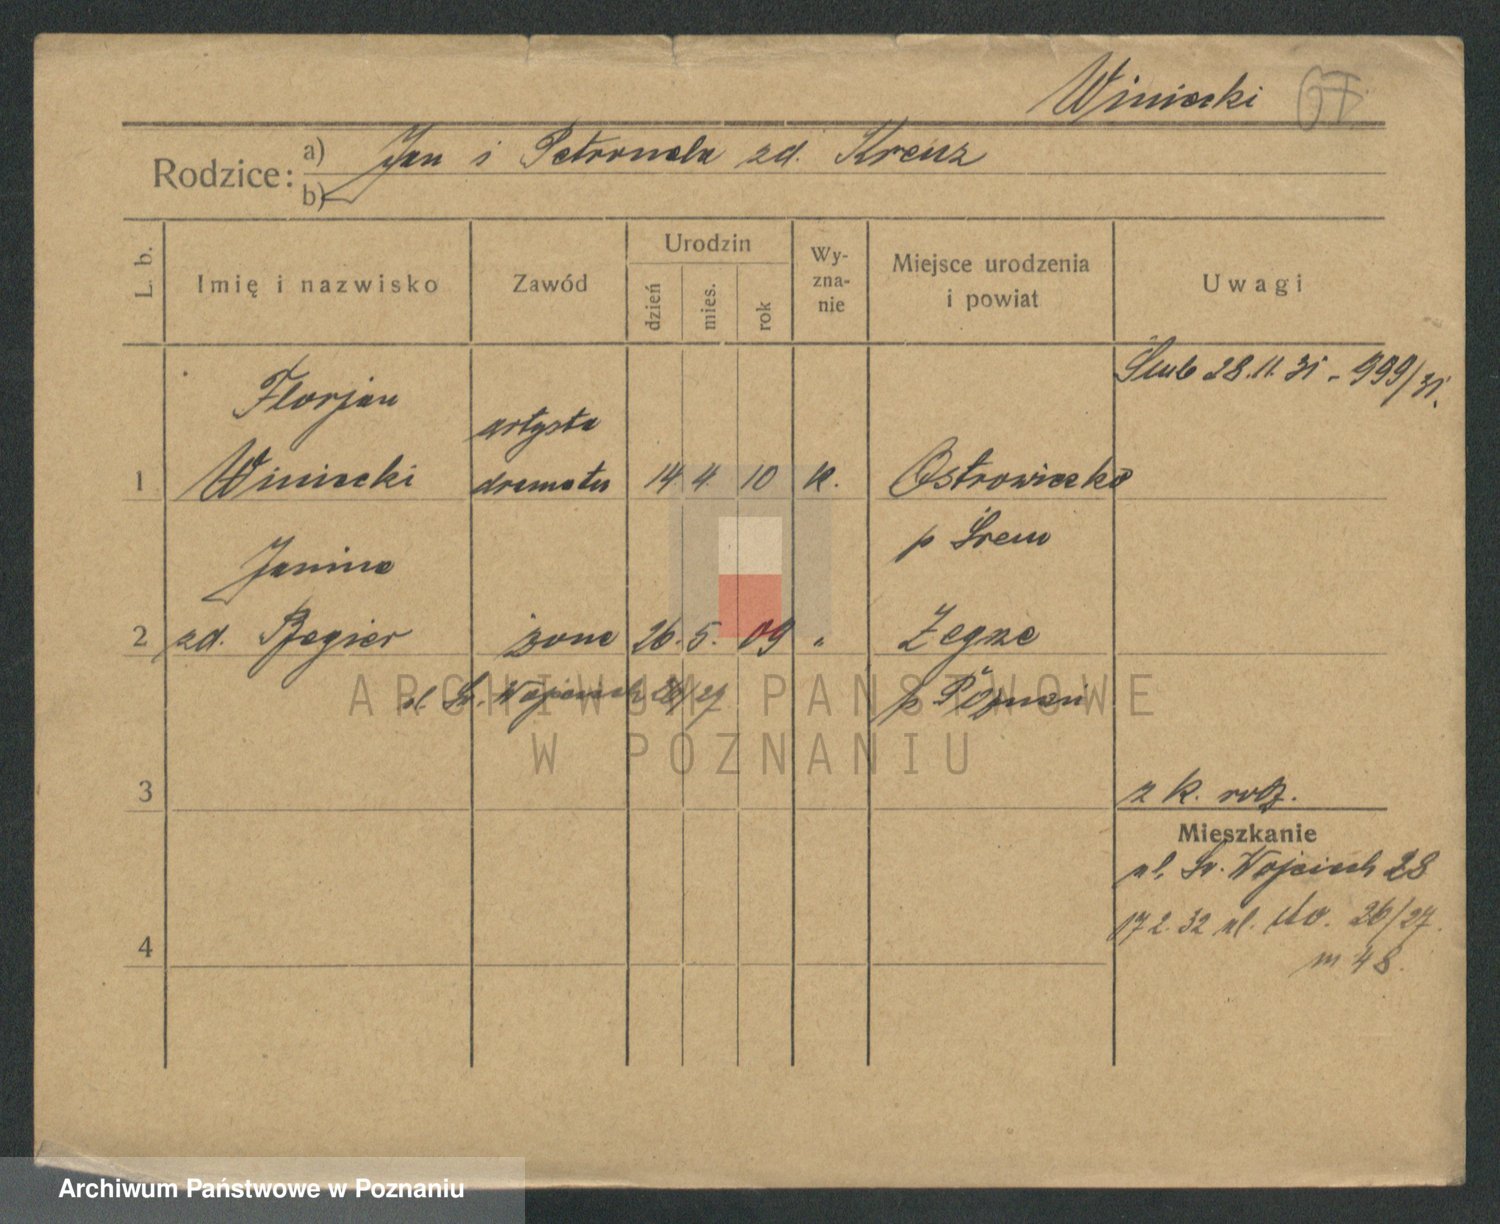 Winiecki
Rodzice: a) Jan i Petronela zd. Kreuz
b)
L. b.
Imię i nazwisko
Zawód
Urodzin
dzień
mies.
rok
Wy-
zna-
nie
Miejsce urodzenia
i powiat
Uwagi
Ślub 28.11.31 - 999/31.
Florjan
artysta
1 Winiecki dramatu 14 4. 10 k. Ostrowieczko
p Śrem
Janina
2 zd. Begier żona 26. 5. 09 " Żegrze
ul. Św. Wojciech 26/27 p Poznań
3 z k. rodz.
Mieszkanie
ul. Św. Wojciech 28
17 2. 32 ul. dto. 26/27.
4 m 48.
ARCHIWUM PAŃSTWOWE
W POZNANIU
Archiwum Państwowe w Poznaniu